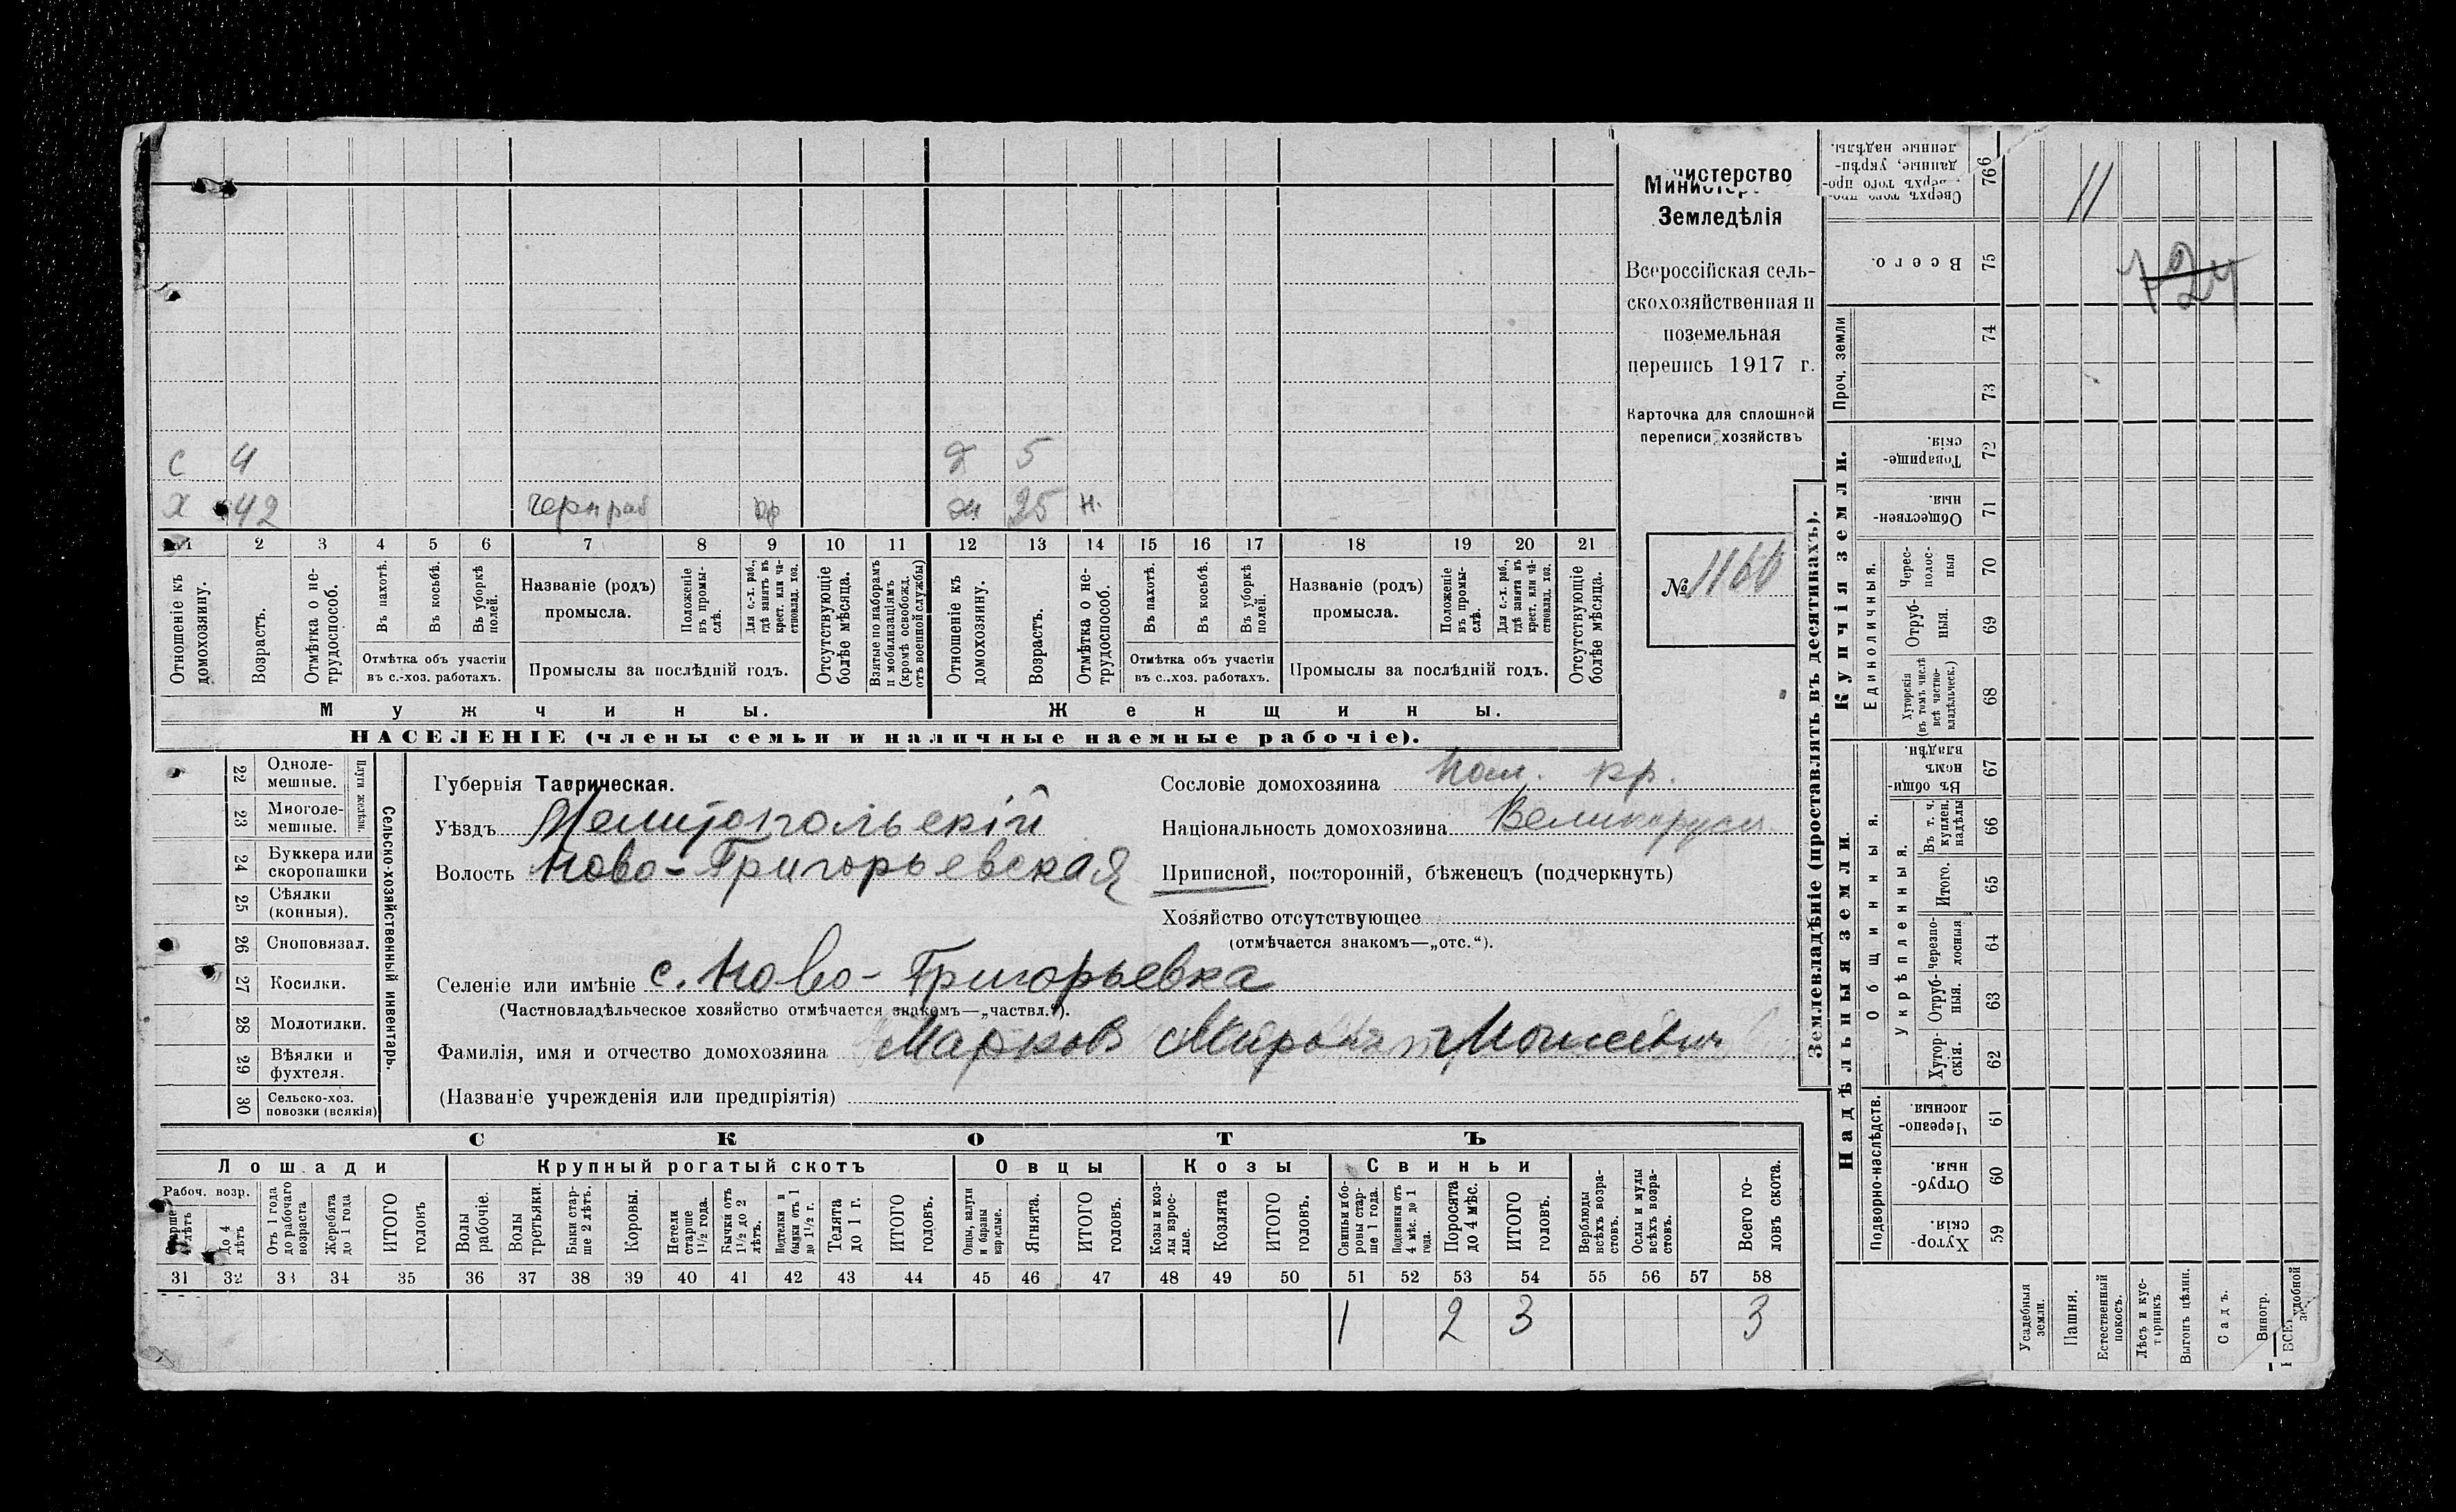 с 4 д 5
х 42 чернраб кр ж 25 н.
1 2 3 4 5 6 7 8 9 10 11 12 13 14 15 16 17 18 19 20 21
Отношеніе къ домохозяину.
Возрастъ.
Отмѣтка о не-трудоспособ.
Въ пахотѣ.
Въ косьбѣ.
Въ уборкѣ полей.
Отмѣтка объ участіи
въ с.-хоз. работахъ.
Названіе (родъ)
промысла.
Положеніе въ промы-слѣ.
Для с.-х. раб., гдѣ занятъ въ крест. или ча-стновлад. хоз.
Промыслы за послѣдній годъ.
Отсутствующіе болѣе мѣсяца.
Взятые по наборамъ и мобилизаціямъ (кромѣ освобожд. отъ военной службы)
Отношеніе къ домохозяину.
Возрастъ.
Отмѣтка о не-трудоспособ.
Въ пахотѣ.
Въ косьбѣ.
Въ уборкѣ полей.
Отмѣтка объ участіи
въ с.-хоз. работахъ.
Названіе (родъ)
промысла.
Положеніе въ промы-слѣ.
Для с.-х. раб., гдѣ занята въ крест. или ча-стновлад. хоз.
Промыслы за послѣдній годъ.
Отсутствующіе болѣе мѣсяца.
Мужчины. Женщины.
НАСЕЛЕНІЕ (члены семьи и наличные наемные рабочіе).
Министерство
Земледѣлія
Всероссійская сель-
скохозяйственная и
поземельная
перепись 1917 г.
Карточка для сплошной
переписи хозяйствъ
№ 1160
22 Одноле-мешные.
23 Многоле-мешные.
Плуги желѣзн.
24 Буккера или скоропашки
25 Сѣялки (конныя).
26 Сноповязал.
27 Косилки.
28 Молотилки.
29 Вѣялки и фухтеля.
30 Сельско-хоз. повозки (всякія)
Сельско-хозяйственный инвентарь.
Губернія Таврическая.
Уѣздъ Мелитопольскій
Волость Ново-Григорьевская
Сословіе домохозяина кр.
Національность домохозяина Великорусс
Приписной, посторонній, бѣженецъ (подчеркнуть)
Хозяйство отсутствующее
(отмѣчается знакомъ—„отс.“).
Селеніе или имѣніе с. Ново-Григорьевка
(Частновладѣльческое хозяйство отмѣчается знакомъ—„частвл.“).
Фамилія, имя и отчество домохозяина Марков Мирон Моисеевич
(Названіе учрежденія или предпріятія)
СКОТЪ
Лошади Крупный рогатый скотъ Овцы Козы Свиньи
Рабоч. возр.
Старше 4 лѣтъ
До 4 лѣтъ
Отъ 1 года до рабочаго возраста
Жеребята до 1 года
ИТОГО головъ
Волы рабочіе.
Волы третьяки.
Быки стар-ше 2 лѣтъ.
Коровы.
Нетели старше 1½ года.
Бычки отъ 1½ до 2 лѣтъ.
Подтелки и бычки отъ 1 до 1½ г.
Телята до 1 г.
ИТОГО головъ.
Овцы, валухи и бараны взрослые.
Ягнята.
ИТОГО головъ.
Козы и коз-лы взрос-лые.
Козлята
ИТОГО головъ.
Свиньи и бо-ровы стар-ше 1 года.
Подсвинки отъ 4 мѣс. до 1 года.
Поросята до 4 мѣс.
ИТОГО головъ.
Верблюды всѣхъ возра-стовъ.
Ослы и мулы всѣхъ возра-стовъ.
Всего го-ловъ скота.
31 32 33 34 35 36 37 38 39 40 41 42 43 44 45 46 47 48 49 50 51 52 53 54 55 56 57 58
1 2 3 3
Землевладѣніе (проставлять въ десятинахъ).
Надѣльныя земли. Купчія земли. Проч. земли
Подворно-наслѣдств. Общинныя. Укрѣпленныя. Единоличныя.
Сверхъ того про-данные, укрѣп-ленные надѣлы. 76
Всего. 75
74
73
Товарище-скія. 72
Обществен-ныя. 71
Черес-полос-ныя 70
Отруб-ныя. 69
Хуторскія (въ томъ числѣ всѣ частно-владѣльческ.) 68
Въ общин-номъ владѣн. 67
Въ т. ч. куплен. надѣлы 66
Итого. 65
Черезпо-лосныя 64
Отруб-ныя. 63
Хутор-скія. 62
Черезпо-лосныя. 61
Отруб-ныя. 60
Хутор-скія. 59
Усадебныя земли.
Пашня.
Естественный покосъ.
Лѣсъ и кус-тарникъ
Выгонъ цѣлин.
Садъ.
Виногр.
11
124